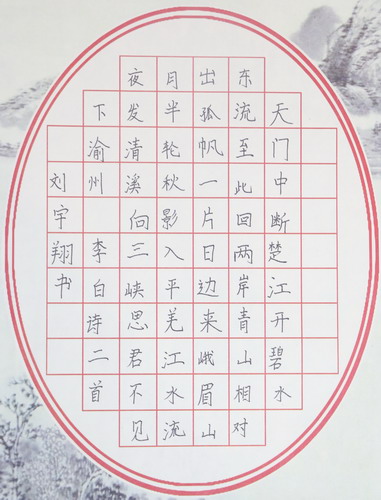 天门中断楚江开碧水
东流至此回两岸青山相对
出孤帆一片日边来峨眉山
月半轮秋影入平羌江水流
夜发清溪向三峡思君不见
下渝州 李白诗二首
刘宇翔书